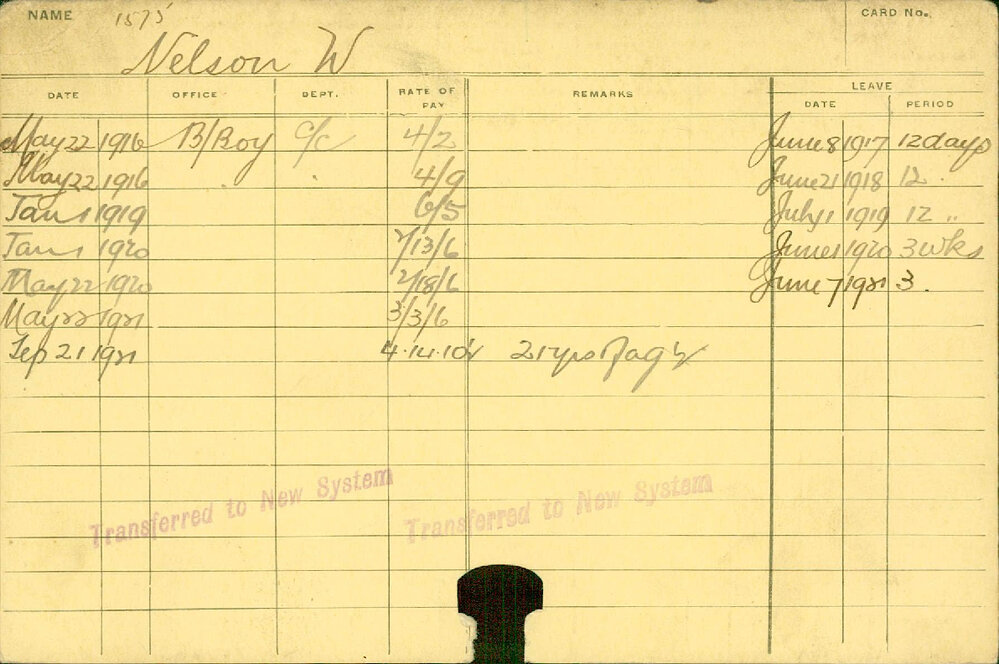 NAME 1575 CARD No.
Nelson W
DATE OFFICE DEPT. RATE OF PAY REMARKS LEAVE
DATE PERIOD
May 22 1916 B/Roy c/c 4/2 June 8 1917 12 days
May 22 1916 4/9 June 21 1918 12 "
Jan 1 1919 6/5 July 1 1919 12 "
Jan 1 1920 /13/6 June 1 1920 3 wks
May 22 1920 /18/6 June 7 1921 3 "
May 22 1921 3/3/6
Sep 21 1921 4.14.10½ 21 yrs of ag
Transferred to New System Transferred to New System